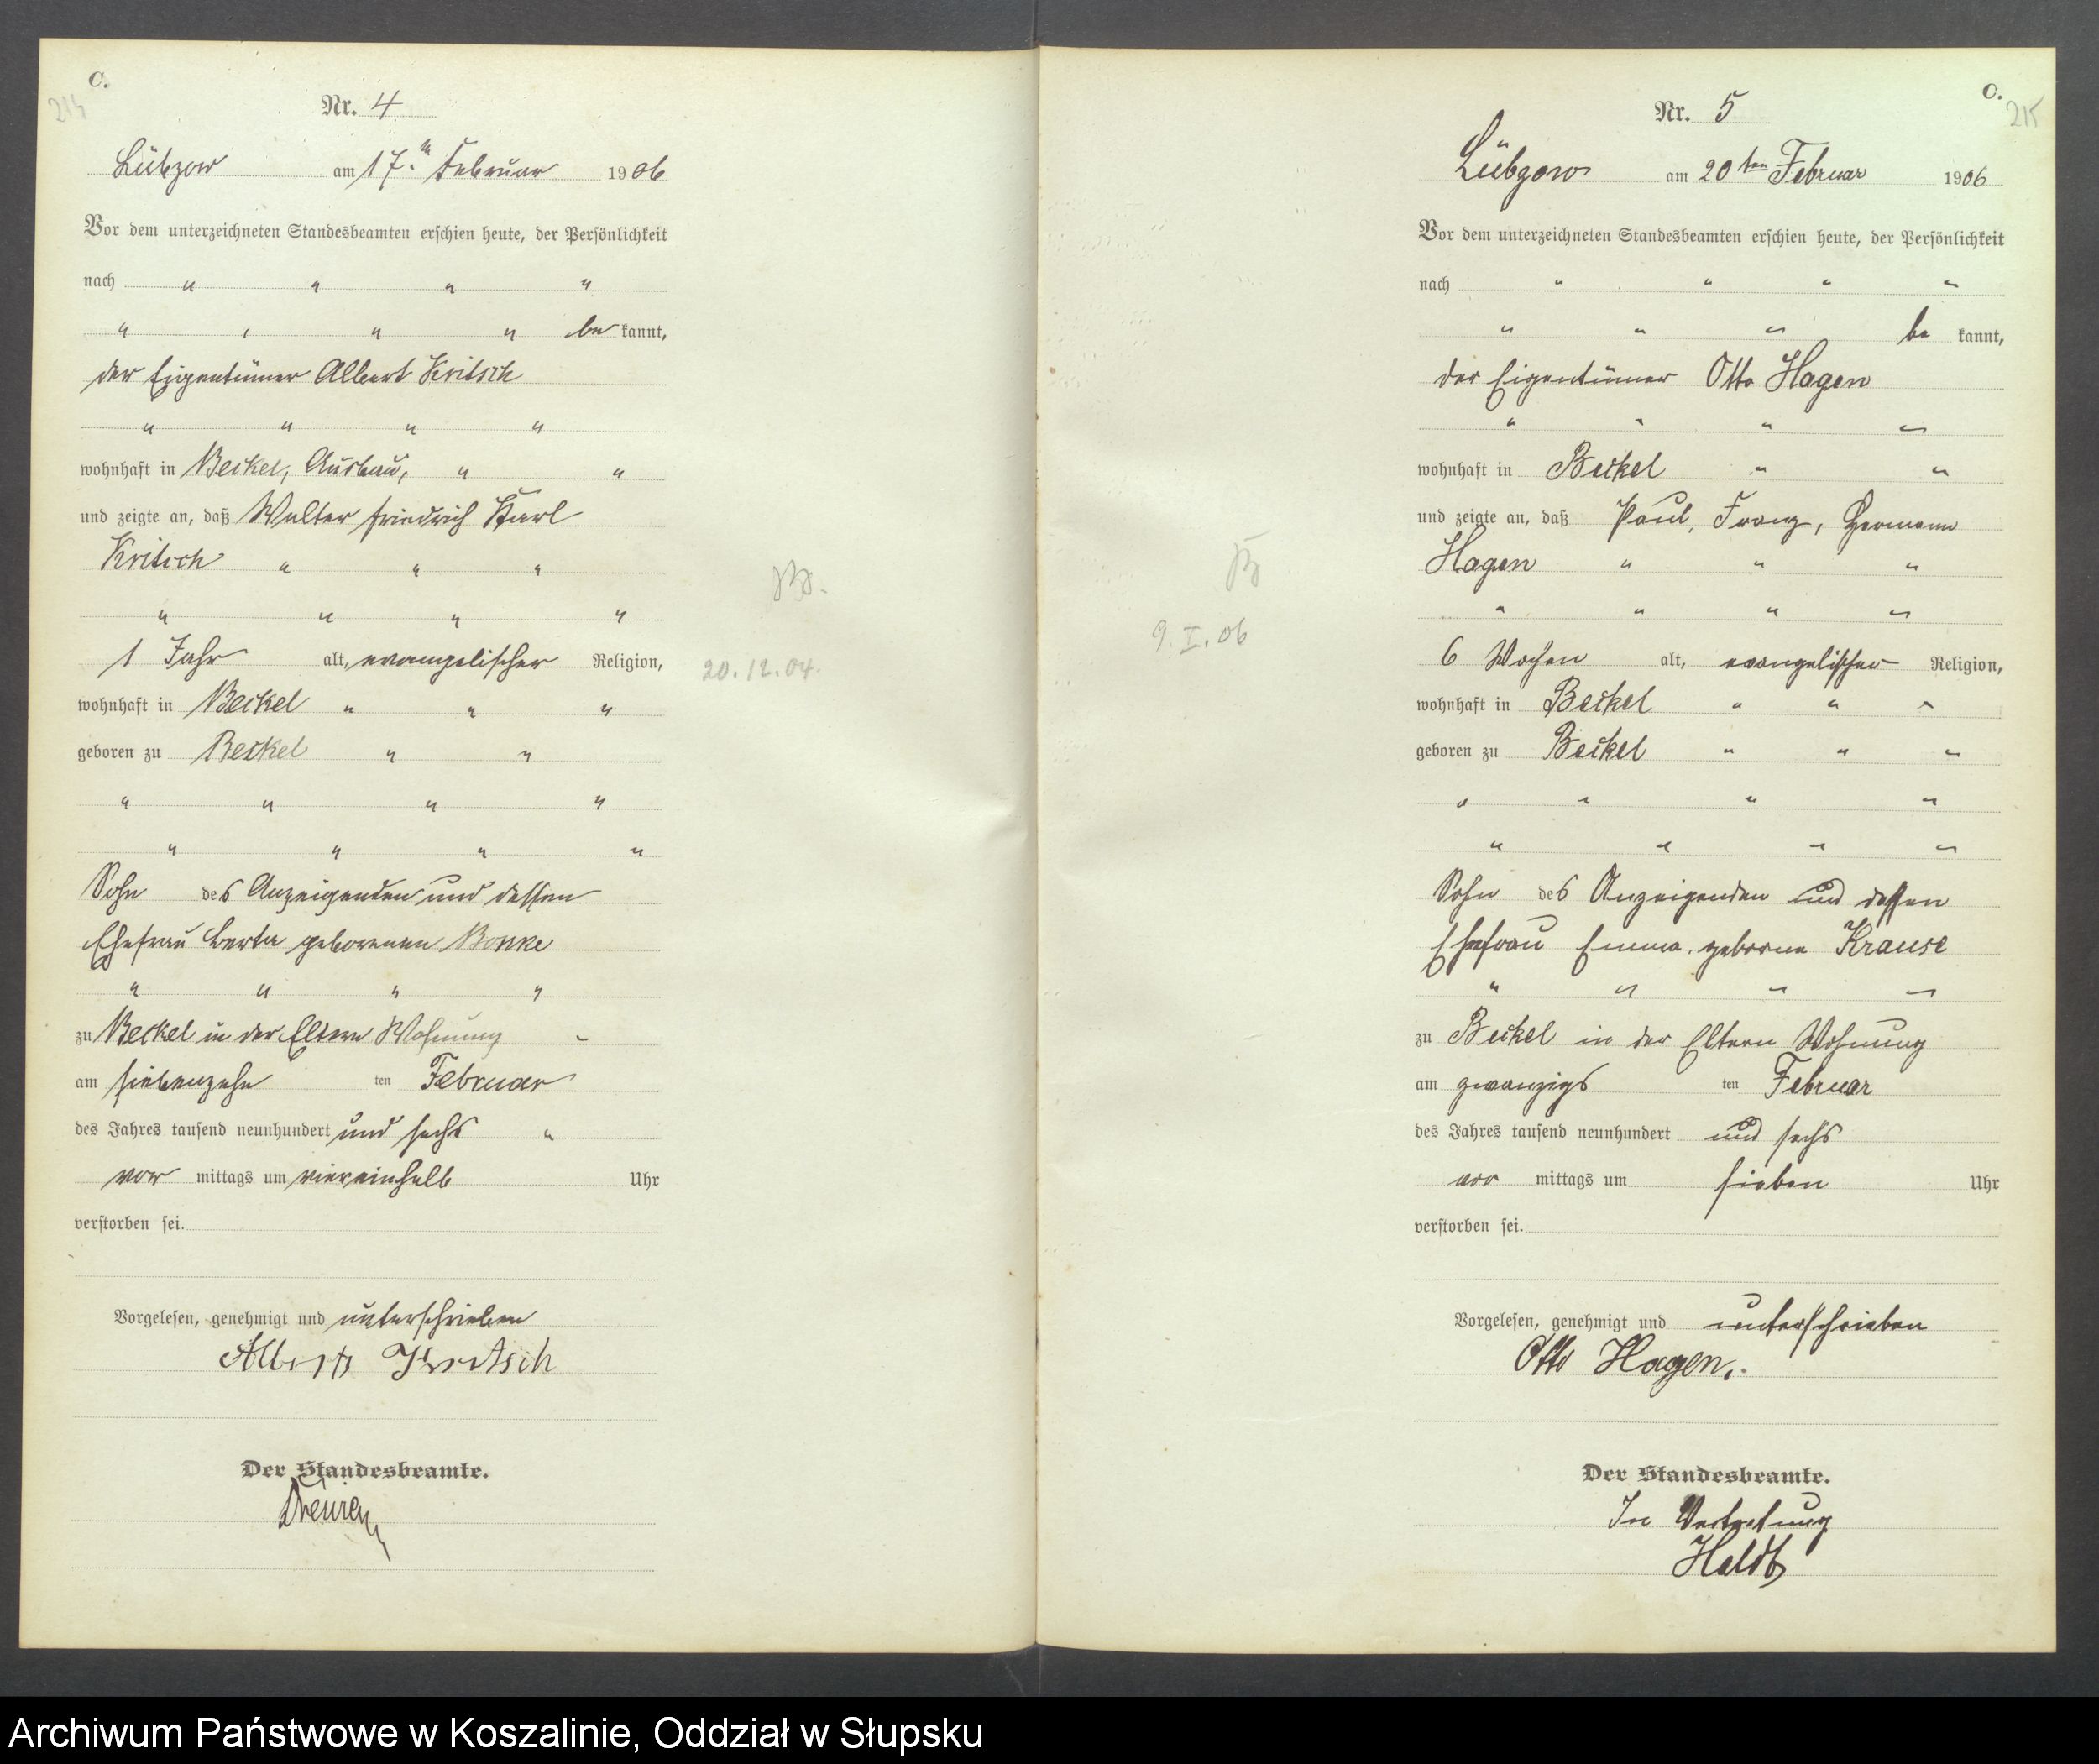 C.
214
Nr. 4
Lübzow am 17. ten Februar 1906
Vor dem unterzeichneten Standesbeamten erschien heute, der Persönlichkeit
nach " " " "
" " " " be kannt,
der Eigentümer Albert Kritsch
" " " "
wohnhaft in Beckel, Ausbau, " "
und zeigte an, daß Walter Friedrich Karl
Kritsch " " "
" " " "
1 Jahr alt, evangelischer Religion,
wohnhaft in Beckel " " "
geboren zu Beckel " "
" " " "
" " " "
Sohn des Anzeigenden und dessen
Ehefrau Berta geborenen Bonke
" " " "
zu Beckel in der Eltern Wohnung "
am siebenzehn ten Februar
des Jahres tausend neunhundert und sechs "
vor mittags um viereinhalb Uhr
verstorben sei.
Vorgelesen, genehmigt und unterschrieben
Albert Kritsch
Der Standesbeamte.
20.12.04.
C.
215
Nr. 5
Lübzow am 20 ten Februar 1906
Vor dem unterzeichneten Standesbeamten erschien heute, der Persönlichkeit
nach " " " "
" " " be kannt,
der Eigentümer Otto Hagen
" " " "
wohnhaft in Beckel " "
und zeigte an, daß Paul, Franz, Hermann
Hagen " " "
" " " "
6 Wochen alt, evangelischer Religion,
wohnhaft in Beckel " " "
geboren zu Beckel " " "
" " " "
" " " "
Sohn des Anzeigenden und dessen
Ehefrau Emma, geborne Krause
" " " "
zu Beckel in der Eltern Wohnung
am zwanzigs ten Februar
des Jahres tausend neunhundert und sechs
vor mittags um sieben Uhr
verstorben sei.
Vorgelesen, genehmigt und unterschrieben
Otto Hagen.
Der Standesbeamte.
In Vertretung
Heldt
9. I. 06
Archiwum Państwowe w Koszalinie, Oddział w Słupsku